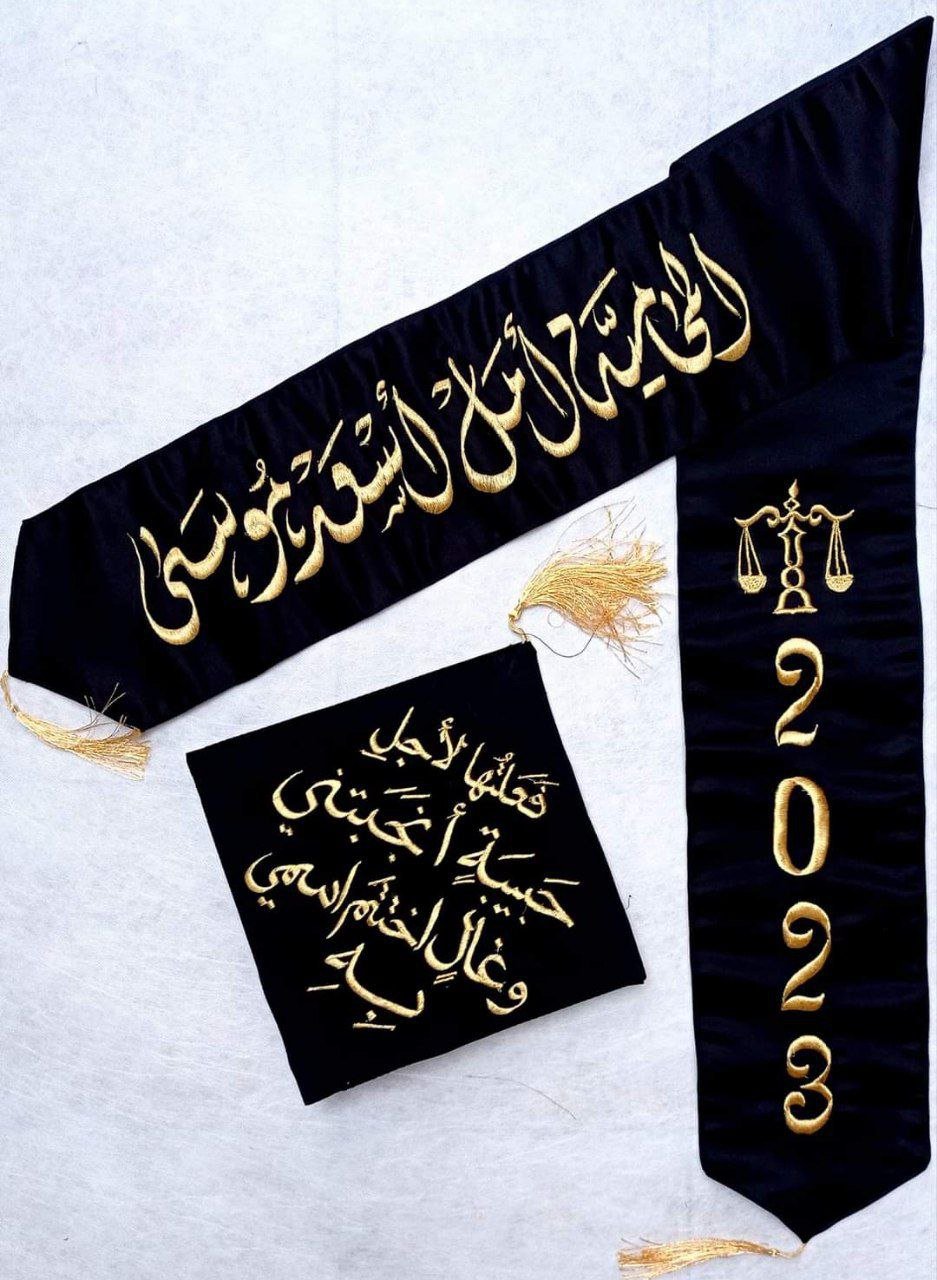 المحاميَّة أمل أسعد مُوسى
2023
فَعَلتُها لأجلِ
حَبيبَةٍ أنجَبَتني
وغالٍ اختَتَم اسمي
بِهِ